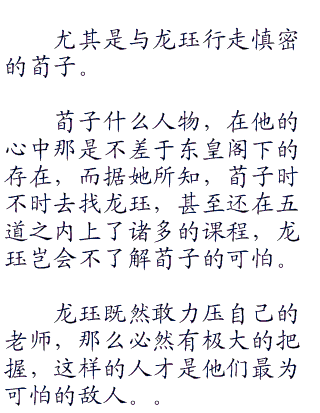 尤其是与龙珏行走慎密
的荀子。
荀子什么人物，在他的
心中那是不差于东皇阁下的
存在，而据她所知，荀子时
不时去找龙珏，甚至还在五
道之内上了诸多的课程，龙
珏岂会不了解荀子的可怕。
龙珏既然敢力压自己的
老师，那么必然有极大的把
握，这样的人才是他们最为
可怕的敌人。。